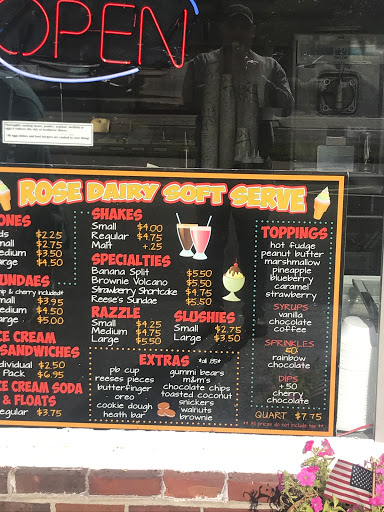 OPEN
ROSE DAIRY SOFT SERVE
$2.25
$2.75
$3.50
$4.50
& cherry included
$3.95
$4.50
$5.00
CREAM
SANDWICHES
$2.50
Pack $6.95
CREAM SODA
& FLOATS
$3.75
SHAKES
Small $4.00
Regular $4.75
Malt +.25
SPECIALTIES
Banana Split $5.50
Brownie Volcano $5.50
Strawberry Shortcake $4.75
Reese's Sundae $5.50
RAZZLE
Small $4.25
Medium $4.75
Large $5.50
SLUSHIES
Small $2.75
Large $3.50
EXTRAS
pb cup
reeses pieces
butterfinger
oreo
cookie dough
heath bar
gummi bears
m&m's
chocolate chips
toasted coconut
snickers
walnuts
brownie
TOPPINGS
hot fudge
peanut butter
marshmallow
pineapple
blueberry
caramel
strawberry
SYRUPS
vanilla
chocolate
coffee
SPRINKLES
rainbow
chocolate
DIPS
+.50
cherry
chocolate
QUART $7.75
All prices do not include tax